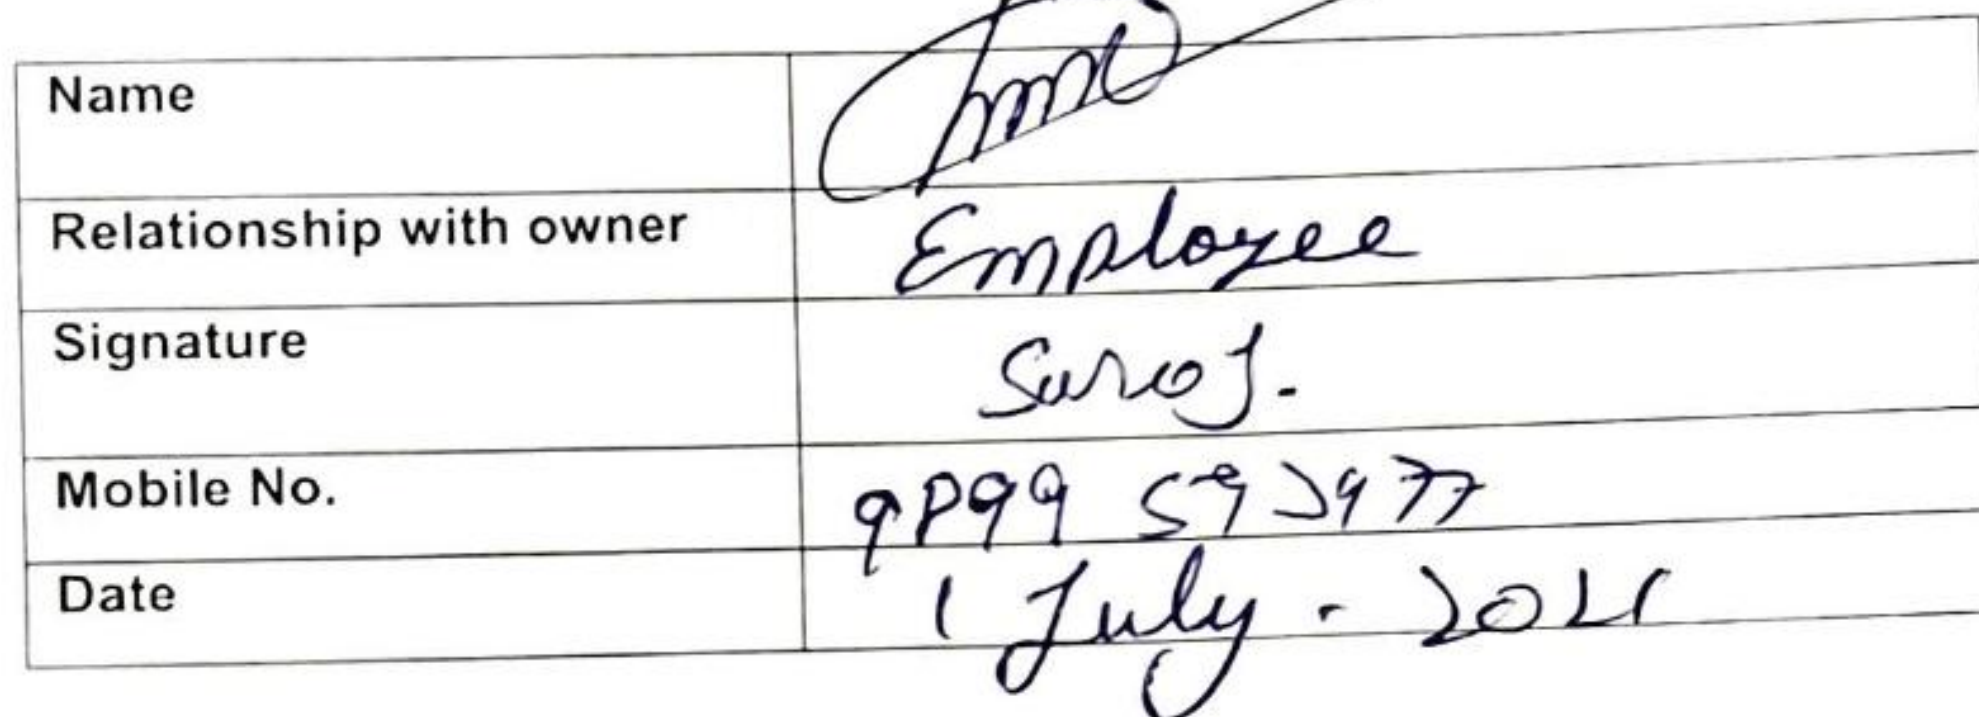 Name
Relationship with owner Employee
Signature Suroj.
Mobile No.
Date 1 July. 2021